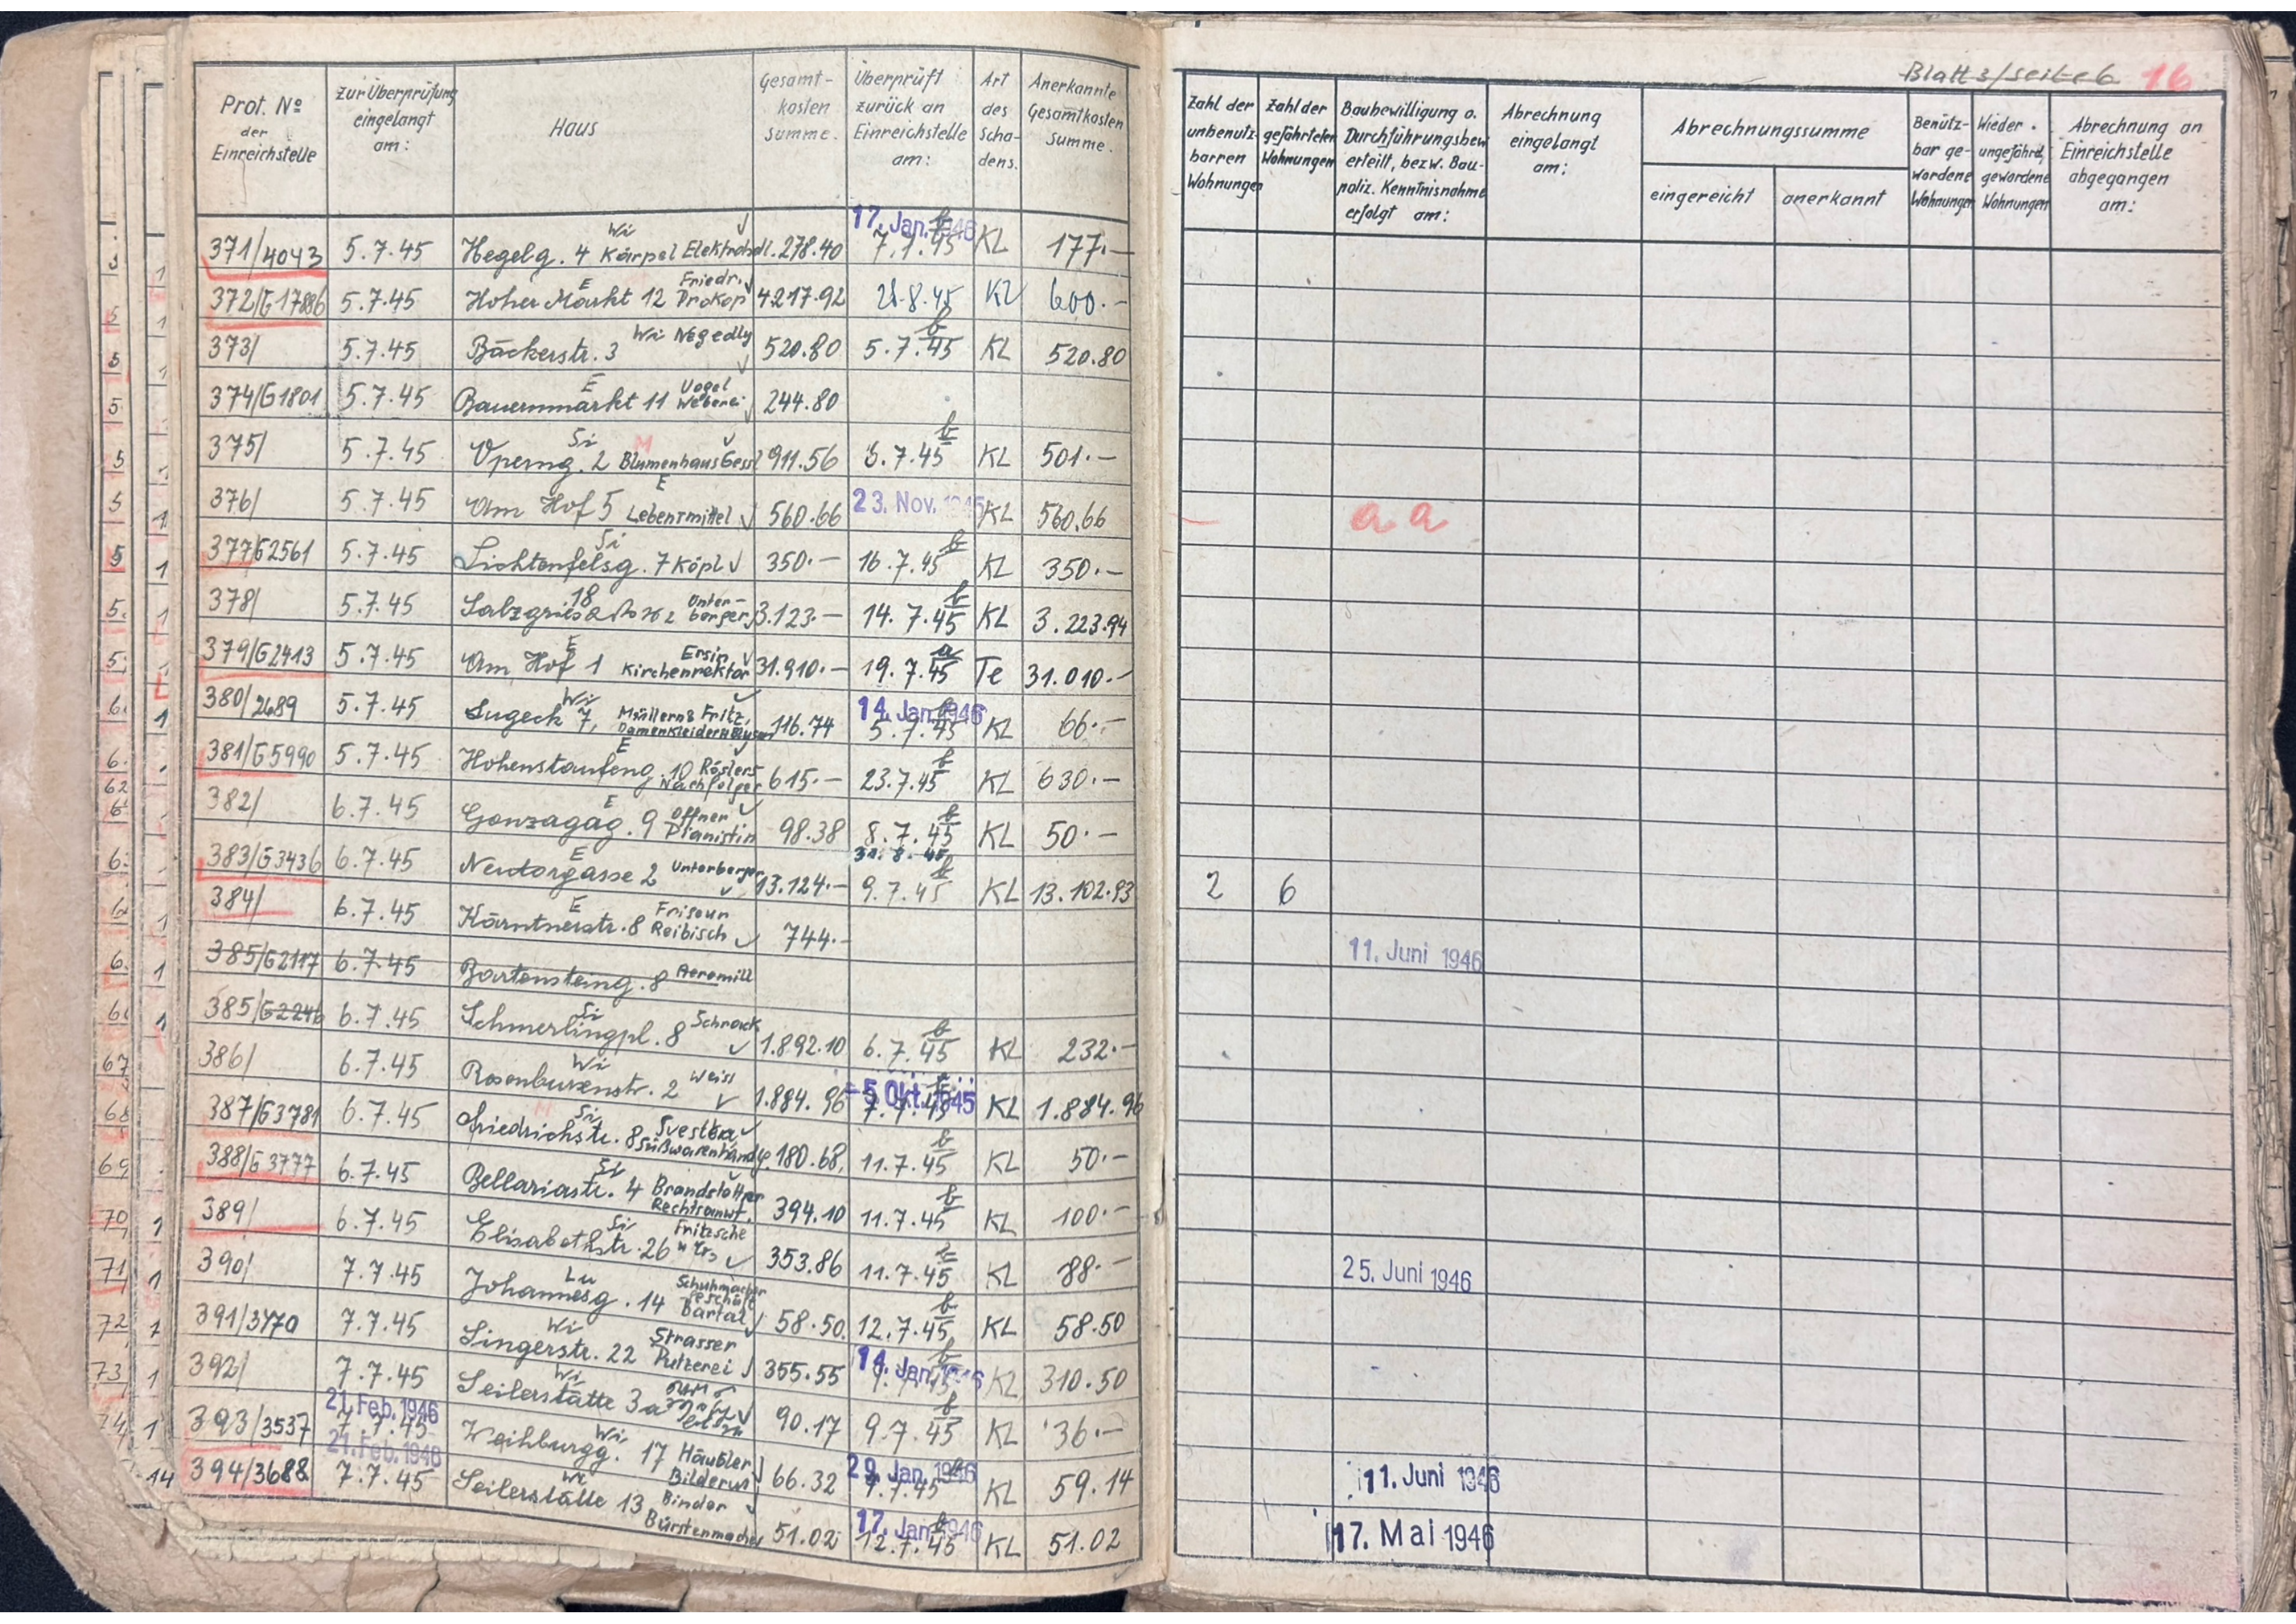 Blatt 3/Seite 6 16
Prot. No der Einreichstelle | Zur Überprüfung eingelangt am: | Haus | Gesamt-kosten Summe. | Überprüft zurück an Einreichstelle am: | Art des Scha-dens. | Anerkannte Gesamtkosten Summe. | Zahl der unbenutz-barren Wohnungen | Zahl der gefährteten Wohnungen | Baubewilligung o. Durchführungsbew. erteilt, bezw. Bau-poliz. Kenntnisnahme erfolgt am: | Abrechnung eingelangt am: | Abrechnungssumme eingereicht | anerkannt | Benütz-bar ge-wordene Wohnungen | Wieder-ungefährd. gewordene Wohnungen | Abrechnung an Einreichstelle abgegangen am:
371/4043 5.7.45 Hegelg. 4 Wi Kärpel Elektrohdl. 278.40 17. Jan. 1946 7.7.45 b KL 177.—
372/G17886 5.7.45 Hoher Markt 12 E Friedr. Prokop 4217.92 28.8.45 KL 600.—
373/ 5.7.45 Bäckerstr. 3 Wi Negedly 520.80 5.7.45 b KL 520.80
374/G1801 5.7.45 Bauernmarkt 11 E Vogel Weberei 244.80
375/ 5.7.45 Operng. 2 Si M Blumenhaus Gessl 911.56 3.7.45 b KL 501.—
376/ 5.7.45 Am Hof 5 E Lebensmittel 560.66 23. Nov. 1945 KL 560.66 a a
377/G2561 5.7.45 Lichtenfelsg. 7 Si Köpl 350.— 16.7.45 b KL 350.—
378/ 5.7.45 Salzgries 18 Unter-berger 3.123.— 14.7.45 b KL 3.223.94
379/G2413 5.7.45 Am Hof 1 E Ersin Kirchenrektor 31.910.— 19.7.45 a Te 31.010.—
380/2689 5.7.45 Lugeck 7, Wi Müllern & Fritz, Damenkleider 116.74 14. Jan. 1946 5.7.45 KL 66.—
381/G5990 5.7.45 Hohenstaufeng. 10 E Röslers Nachfolger 615.— 23.7.45 b KL 630.—
382/ 6.7.45 Gonzagag. 9 E Offner Pianistin 98.38 8.7.45 b KL 50.—
383/G3436 6.7.45 Neutorgasse 2 E Unterberger 13.124.— 31.8.45 9.7.45 b KL 13.102.93 2 6
384/ 6.7.45 Kärntnerstr. 8 E Friseur Reibisch 744.— 11. Juni 1946
385/G2117 6.7.45 Bartensteing. 8 Aeromill
385/G2246 6.7.45 Schmerlingpl. 8 Si Schrack 1.892.10 6.7.45 b KL 232.—
386/ 6.7.45 Rosenbursenstr. 2 Wi Weiss 1.884.96 – 5. Okt. 1945 7.7.45 KL 1.884.96
387/G3781 6.7.45 Friedrichstr. 8 M Si Svestka Süßwarenhandlg. 180.68 11.7.45 b KL 50.—
388/G3777 6.7.45 Bellariastr. 4 Si Brandstötter Rechtsanw. 394.10 11.7.45 b KL 100.—
389/ 6.7.45 Elisabethstr. 26 Si Fritzsche 353.86 11.7.45 KL 88.— 25. Juni 1946
390/ 7.7.45 Johannesg. 14 Lu Schuhmacher Geschäft Bartal 58.50 12.7.45 b KL 58.50
391/3470 7.7.45 Singerstr. 22 Wi Strasser Putzerei 355.55 14. Jan. 1946 KL 310.50
392/ 7.7.45 Seilerstätte 3a Wi 90.17 9.7.45 b KL 36.—
393/3537 21. Feb. 1946 7.7.45 Weihburgg. 17 Wi Häusler Bilderus 66.32 29. Jan. 1946 7.7.45 KL 59.14 11. Juni 1946
394/3688 21. Feb. 1946 7.7.45 Seilerstätte 13 Wi Binder Bürstenmacher 51.02 17. Jan. 1946 12.7.45 KL 51.02 17. Mai 1946